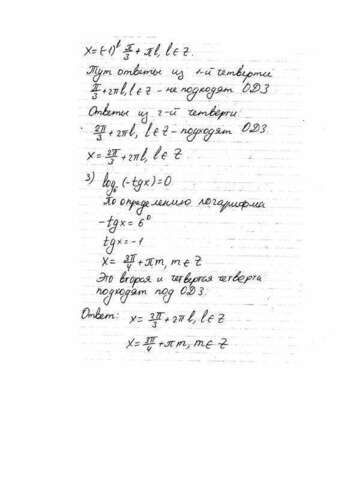 x=(-1)^l π/3 + πl, l∈Z.
Тут ответы из 1-й четверти
π/3+2πl, l∈Z - не подходят ОДЗ
Ответы из 2-й четверти:
2π/3+2πl, l∈Z - подходят ОДЗ.
x= 2π/3+2πl, l∈Z.
3) log₆(-tgx)=0
По определению логарифма
-tgx=6⁰
tgx=-1
x= 3π/4+πm, m∈Z
Это вторая и четвертая четверти
подходят под ОДЗ.
Ответ: x= 2π/3+2πl, l∈Z
x= 3π/4+πm, m∈Z